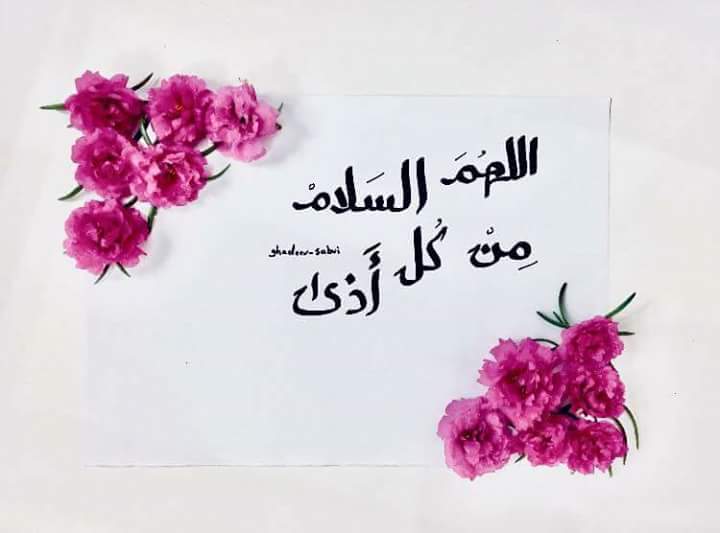 اللهُمَ السَلامْ
مِنْ كُل أَذىٰ
ghadeer_sabri